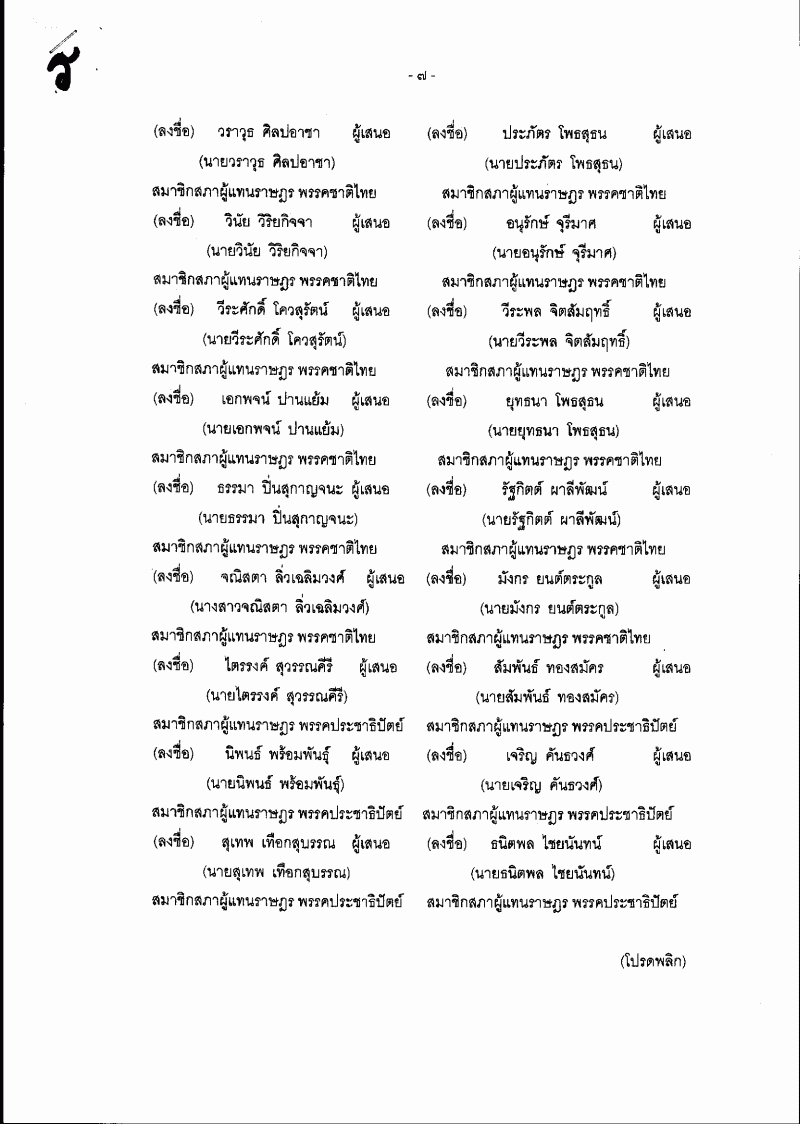 ร
- ๗ -
(ลงชื่อ) วราวุธ ศิลปอาชา ผู้เสนอ (ลงชื่อ) ประภัตร โพธสุธน ผู้เสนอ
(นายวราวุธ ศิลปอาชา) (นายประภัตร โพธสุธน)
สมาชิกสภาผู้แทนราษฎร พรรคชาติไทย สมาชิกสภาผู้แทนราษฎร พรรคชาติไทย
(ลงชื่อ) วินัย วิริยกิจจา ผู้เสนอ (ลงชื่อ) อนุรักษ์ จุรีมาศ ผู้เสนอ
(นายวินัย วิริยกิจจา) (นายอนุรักษ์ จุรีมาศ)
สมาชิกสภาผู้แทนราษฎร พรรคชาติไทย สมาชิกสภาผู้แทนราษฎร พรรคชาติไทย
(ลงชื่อ) วีระศักดิ์ โควสุรัตน์ ผู้เสนอ (ลงชื่อ) วีระพล จิตสัมฤทธิ์ ผู้เสนอ
(นายวีระศักดิ์ โควสุรัตน์) (นายวีระพล จิตสัมฤทธิ์)
สมาชิกสภาผู้แทนราษฎร พรรคชาติไทย สมาชิกสภาผู้แทนราษฎร พรรคชาติไทย
(ลงชื่อ) เอกพจน์ ปานแย้ม ผู้เสนอ (ลงชื่อ) ยุทธนา โพธสุธน ผู้เสนอ
(นายเอกพจน์ ปานแย้ม) (นายยุทธนา โพธสุธน)
สมาชิกสภาผู้แทนราษฎร พรรคชาติไทย สมาชิกสภาผู้แทนราษฎร พรรคชาติไทย
(ลงชื่อ) ธรรมา ปิ่นสุกาญจนะ ผู้เสนอ (ลงชื่อ) รัฐกิตติ์ ผาลีพัฒน์ ผู้เสนอ
(นายธรรมา ปิ่นสุกาญจนะ) (นายรัฐกิตติ์ ผาลีพัฒน์)
สมาชิกสภาผู้แทนราษฎร พรรคชาติไทย สมาชิกสภาผู้แทนราษฎร พรรคชาติไทย
(ลงชื่อ) จณิสตา ลิ่วเฉลิมวงศ์ ผู้เสนอ (ลงชื่อ) มังกร ยนต์ตระกูล ผู้เสนอ
(นางสาวจณิสตา ลิ่วเฉลิมวงศ์) (นายมังกร ยนต์ตระกูล)
สมาชิกสภาผู้แทนราษฎร พรรคชาติไทย สมาชิกสภาผู้แทนราษฎร พรรคชาติไทย
(ลงชื่อ) ไตรรงค์ สุวรรณคีรี ผู้เสนอ (ลงชื่อ) สัมพันธ์ ทองสมัคร ผู้เสนอ
(นายไตรรงค์ สุวรรณคีรี) (นายสัมพันธ์ ทองสมัคร)
สมาชิกสภาผู้แทนราษฎร พรรคประชาธิปัตย์ สมาชิกสภาผู้แทนราษฎร พรรคประชาธิปัตย์
(ลงชื่อ) นิพนธ์ พร้อมพันธุ์ ผู้เสนอ (ลงชื่อ) เจริญ คันธวงศ์ ผู้เสนอ
(นายนิพนธ์ พร้อมพันธุ์) (นายเจริญ คันธวงศ์)
สมาชิกสภาผู้แทนราษฎร พรรคประชาธิปัตย์ สมาชิกสภาผู้แทนราษฎร พรรคประชาธิปัตย์
(ลงชื่อ) สุเทพ เทือกสุบรรณ ผู้เสนอ (ลงชื่อ) ธนิตพล ไชยนันทน์ ผู้เสนอ
(นายสุเทพ เทือกสุบรรณ) (นายธนิตพล ไชยนันทน์)
สมาชิกสภาผู้แทนราษฎร พรรคประชาธิปัตย์ สมาชิกสภาผู้แทนราษฎร พรรคประชาธิปัตย์
(โปรดพลิก)